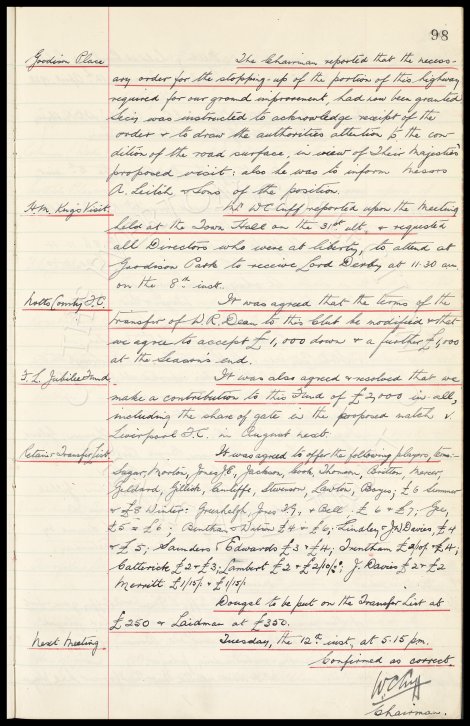 98
Goodison Place The Chairman reported that the necess-
ary order for the stopping-up of the portion of this highway
required for our ground improvement, had now been granted
Secy. was instructed to acknowledge receipt of the
order & to draw the authorities attention to the con-
dition of the road surface, in view of Their Majesties
proposed visit: also he was to inform Messrs
A. Leitch & Sons of the position.
H.M. King's Visit. Mr. W.C. Cuff reported upon the Meeting
held at the Town Hall on the 31st ult. & requested
all Directors who were at liberty, to attend at
Goodison Park to receive Lord Derby at 11.30 am
on the 8th inst.
Notts County F.C. It was agreed that the terms of the
transfer of W.R. Dean to this Club be modified & that
we agree to accept £1,000 down & a further £1,000
at the Season's end.
F.L. Jubilee Fund. It was also agreed & resolved that we
make a contribution to this Fund of £2,000 in all,
including the share of gate in the proposed match v.
Liverpool F.C. in August next.
Retain & Transfer List. It was agreed to offer the following players, terms:-
Sagar, Morton, Jones J.E., Jackson, Cook, Thomson, Britton, Mercer,
Geldard, Gillick, Cunliffe, Stevenson, Lawton, Boyes; £6 Summer
& £8 Winter: Greenhalgh, Jones T.G., & Bell; £6 & £7; Gee,
£5 & £6; Bentham & Watson £4 & £6; Lindley & J.W. Davies £4
& £5; Saunders & Edwards £3 & £4; Trentham £2/10/- & £4;
Catterick £2 & £3; Lambert £2 & £2/10/-; J. Davies £2 & £2
Merritt £1/15/- & £1/15/-
Dougal to be put on the Transfer List at
£250 & Laidman at £350.
Next Meeting. Tuesday, the 12th inst, at 5.15 pm.
Confirmed as correct.
W.C. Cuff
Chairman.